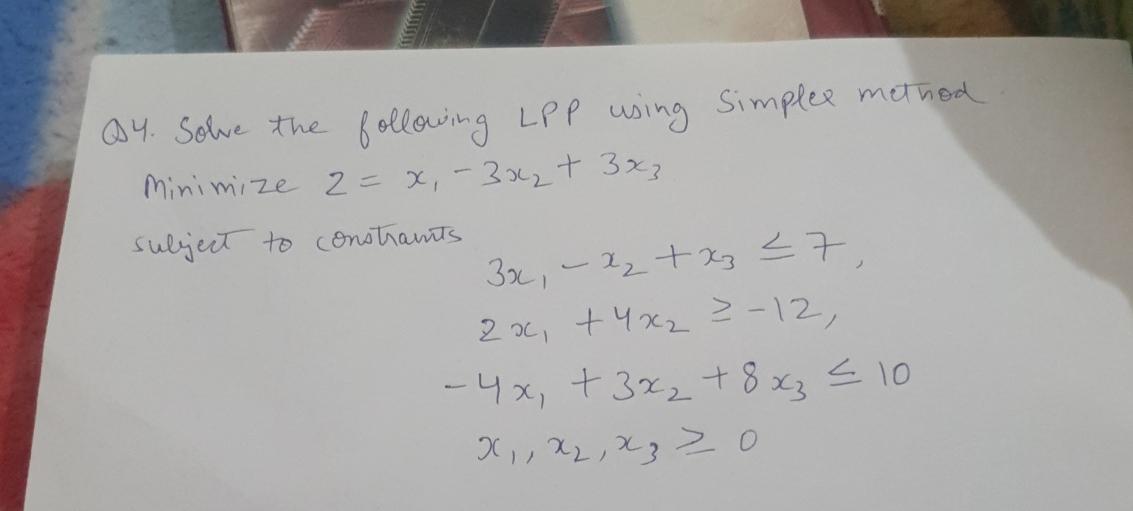 Q4. Solve the following LPP using Simplex method
Minimize Z = x₁ - 3x₂ + 3x₃
subject to constraints
3x₁ - x₂ + x₃ ≤ 7,
2x₁ + 4x₂ ≥ -12,
-4x₁ + 3x₂ + 8x₃ ≤ 10
x₁, x₂, x₃ ≥ 0